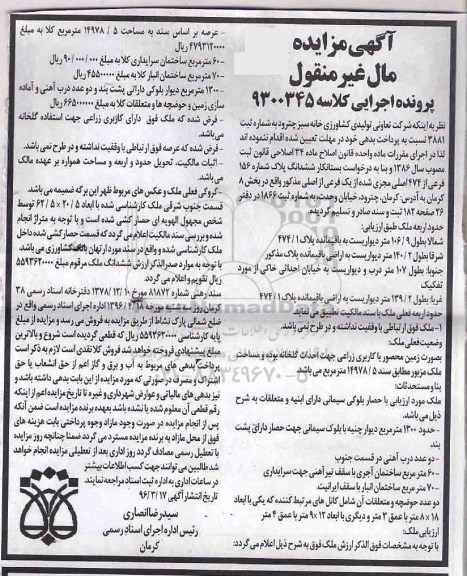 آگهی مزایده
مال غیر منقول
پرونده اجرایی کلاسه ۹۳۰۰۳۴۵
نظر به اینکه شرکت تعاونی تولیدی کشاورزی خانه سبز چترود به شماره ثبت
۳۸۸۱ نسبت به پرداخت بدهی خود در مهلت تعیین شده اقدام ننموده اند
لذا در اجرای مقررات ماده واحده قانون اصلاح ماده ۳۴ اصلاحی قانون ثبت
مصوب سال ۱۳۸۶ و بنا به درخواست بستانکار ششدانگ پلاک شماره ۱۵۶
فرعی از ۴۷۴ اصلی مجزی شده از یک فرعی از اصلی مذکور واقع در بخش ۸
کرمان به آدرس: کرمان، چترود، خیابان وحدت به شماره ثبت ۱۸۶۶ در دفتر
۲۶ صفحه ۱۸۲ ثبت و سند صادر و تسلیم گردیده
حدود اربعه ملک طبق ارزیابی:
شمالا بطول ۱۰۶/۹ متر دیواریست به باقیمانده پلاک ۴۷۴/۱
شرقا بطول ۱۴۰/۲ متر دیواریست به اراضی باقیمانده پلاک مذکور
جنوبا: بطول ۱۰۷ متر درب و دیواریست به خیابان احداثی خاکی از مورد
تفکیک
غربا: بطول ۱۳۹/۲ متر دیواریست به اراضی باقیمانده پلاک ۴۷۴/۱
حدود اربعه فعلی ملک با سند مالکیت تطبیق می نماید
۱- ملک فوق ارتباطی با وقف نداشته و در طرح نمی باشد.
وضعیت فعلی ملک:
بصورت زمین محصور با کاربری زراعی جهت احداث گلخانه بوده و مساحت
ملک مزبور مطابق سند ۱۴۹۷۸/۵ مترمربع می باشد.
بنا و مستحدثات:
ملک مورد ارزیابی با حصار بلوکی سیمانی دارای ابنیه و متعلقات به شرح
ذیل می باشد.
- حدود ۱۳۰۰ مترمربع دیوار چینه با بلوک سیمانی جهت حصار دارای پشت
بند
- دو عدد درب آهنی در قسمت جنوب
- ۶۰ مترمربع ساختمان آجری با سقف تیر آهنی جهت سرایداری
- ۷۰ متر مربع ساختمان انبار با سقف ایرانیت
دو عدد حوضچه و متعلقات آن شامل کانال های مرتبط کننده که یکی با ابعاد
۱۸ × ۸ متر با عمق ۳ متر و دیگری با ابعاد ۱۲ × ۹ متر با عمق ۴ متر
ارزیابی ملک:
با توجه به مشخصات فوق الذکر ارزش ملک فوق به شرح ذیل اعلام می گردد:
- عرصه بر اساس سند به مساحت ۱۴۹۷۸/۵ مترمربع کلا به مبلغ
۴۷۹۳۱۲۰۰۰۰ ریال
- ۶۰ مترمربع ساختمان سرایداری کلا به مبلغ ۹۰/۰۰۰/۰۰۰ ریال
- ۷۰ مترمربع ساختمان انبار کلا به مبلغ ۴۵۵۰۰۰۰۰ ریال
- ۱۳۰۰ مترمربع دیوار بلوکی دارائی پشت بند و دو عدد درب آهنی و آماده
سازی زمین و حوضچه ها و متعلقات کلا به مبلغ ۶۶۵۰۰۰۰۰۰ ریال
- فرض شده که ملک فوق دارای کاربری زراعی جهت استفاده گلخانه
می باشد.
- فرض شده که عرصه فوق ارتباطی با وقفیت نداشته و در طرح نمی باشد.
- اثبات مالکیت، تحویل حدود و اربعه و مساحت همواره بر عهده مالک
می باشد.
- کروکی فعلی ملک و عکس های مربوط ظهر این برگه ضمیمه می باشد.
قسمت جنوب شرقی ملک کارشناسی شده با ابعاد ۲۰/۵ × ۶۲/۵ توسط
شخص مجهول الهویه ای حصار کشی شده است و با توجه به متراژ انجام
شده و بررسی سند مالکیت اعلام می گردد که قسمت حصار کشی شده داخل
ملک کارشناسی شده و واقع در سند مورد ارتهان بانک کشاورزی می باشد.
با توجه به موارد صدرالذکر ارزش ششدانگ ملک مرقوم مبلغ ۵۵۹۳۶۲۰۰۰۰
ریال تقویم و اعلام می گردد.
سند رهنی شماره ۸۱۸۷۲ مورخ ۱۳۷۸/۱۲/۱۰ دفترخانه اسناد رسمی ۳۸
اداره اجرای اسناد رسمی واقع در
ضلع شمالی پارک نشاط از طریق مزایده به فروش می رسد و مزایده از مبلغ
پایه کارشناسی ۵۵۹۳۶۲۰۰۰۰ ریال که قطعی گردیده است شروع و بالاترین
مبلغ پیشنهادی فروخته خواهد شد فروش کلا نقدی است لازم به ذکر است
پرداخت بدهی های مربوط به آب و برق و گاز اعم از حق انشعاب یا حق
اشتراک و مصرف در صورتی که مورد مزایده از این بابت بدهی داشته باشد و
نیز بدهی های مالیاتی و عوارض شهرداری و غیره تا تاریخ مزایده اعم از اینکه
رقم قطعی آن معلوم شده یا نشده باشد بعهده برنده مزایده است ضمن آنکه
پس از انجام مزایده در صورت وجود مازاد وجوه پرداختی بابت هزینه های
فوق از محل مازاد به برنده مزایده مسترد می گردد ضمنا چنانچه روز مزایده
با تعطیل رسمی مصادف گردد روز اداری بعد از تعطیلی مزایده انجام خواهد
شد طالبین می توانند جهت کسب اطلاعات بیشتر
در ساعات اداری به اداره ثبت اسناد مراجعه نمایند.
تاریخ انتشار آگهی: ۹۶/۳/۱۷
سیدرضا انصاری
رئیس اداره اجرای اسناد رسمی
کرمان